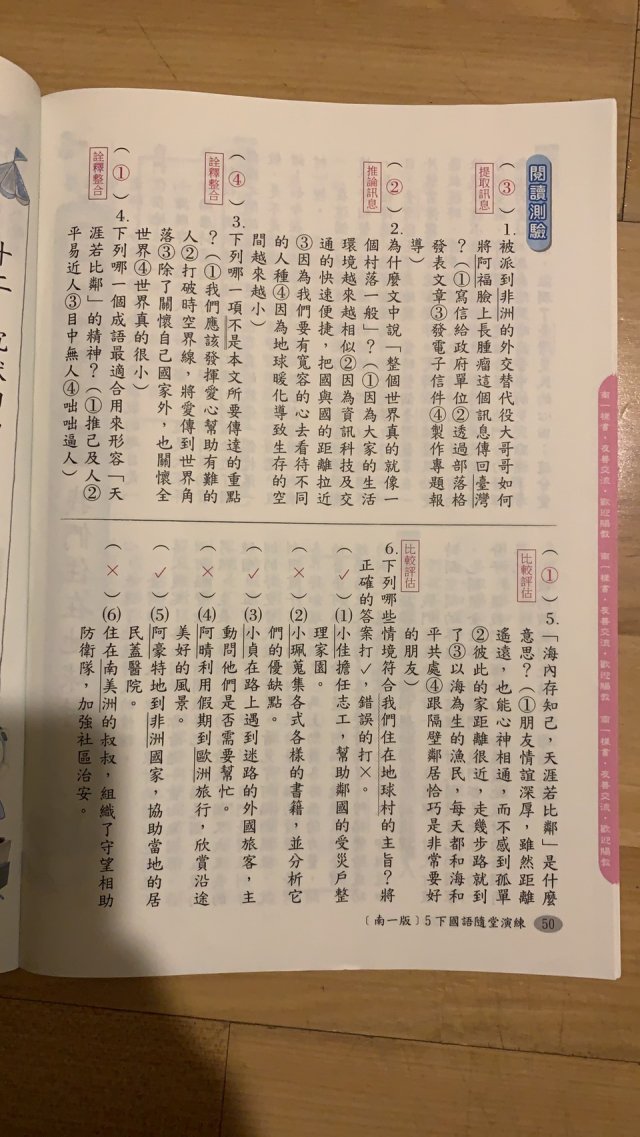 閱讀測驗
(③)1.被派到非洲的外交替代役大哥哥如何
提取訊息
將阿福臉上長腫瘤這個訊息傳回臺灣
?(①寫信給政府單位②透過部落格
發表文章③發電子信件④製作專題報
導)
(②)2.為什麼文中說「整個世界真的就像一
推論訊息
個村落一般」?(①因為大家的生活
環境越來越相似②因為資訊科技及交
通的快速便捷,把國與國的距離拉近
③因為我們要有寬容的心去看待不同
的人種④因為地球暖化導致生存的空
間越來越小)
(④)3.下列哪一項不是本文所要傳達的重點
詮釋整合
?(①我們應該發揮愛心幫助有難的
人②打破時空界線,將愛傳到世界角
落③除了關懷自己國家外,也關懷全
世界④世界真的很小)
(①)4.下列哪一個成語最適合用來形容「天
詮釋整合
涯若比鄰」的精神?(①推己及人②
平易近人③目中無人④咄咄逼人)
(①)5.「海內存知己,天涯若比鄰」是什麼
比較評估
意思?(①朋友情誼深厚,雖然距離
遙遠,也能心神相通,而不感到孤單
②彼此的家距離很近,走幾步路就到
了③以海為生的漁民,每天都和海和
平共處④跟隔壁鄰居恰巧是非常要好
的朋友)
比較評估
6.下列哪些情境符合我們住在地球村的主旨?將
正確的答案打✓,錯誤的打×。
(✓)(1)小佳擔任志工,幫助鄰國的受災戶整
理家園。
(×)(2)小珮蒐集各式各樣的書籍,並分析它
們的優缺點。
(✓)(3)小貞在路上遇到迷路的外國旅客,主
動問他們是否需要幫忙。
(×)(4)阿晴利用假期到歐洲旅行,欣賞沿途
美好的風景。
(✓)(5)阿豪特地到非洲國家,協助當地的居
民蓋醫院。
(×)(6)住在南美洲的叔叔,組織了守望相助
防衛隊,加強社區治安。
〔南一版〕5下國語隨堂演練 50
南一樣書‧友善交流‧歡迎賜教 南一樣書‧友善交流‧歡迎賜教 南一樣書‧友善交流‧歡迎賜教